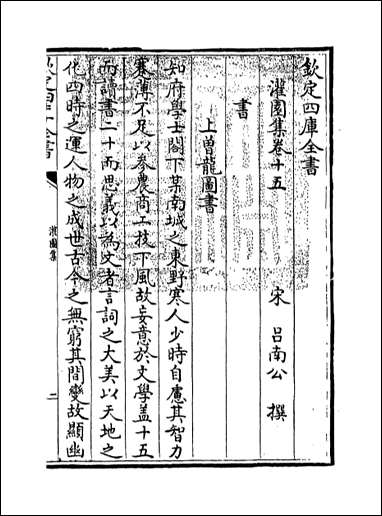 欽定四庫全書
灌園集卷十五 宋 吕南公 撰
書
上曾龍圖書
知府學士閤下某南城之東野寒人少時自慮其智力
蹇薄不足以參農商工技下風故妄意於文學蓋十五
而讀書二十而思義以為文者言詞之大美以天地之
化四時之運人物之成世古今之無窮其間變故顯幽
灌園集